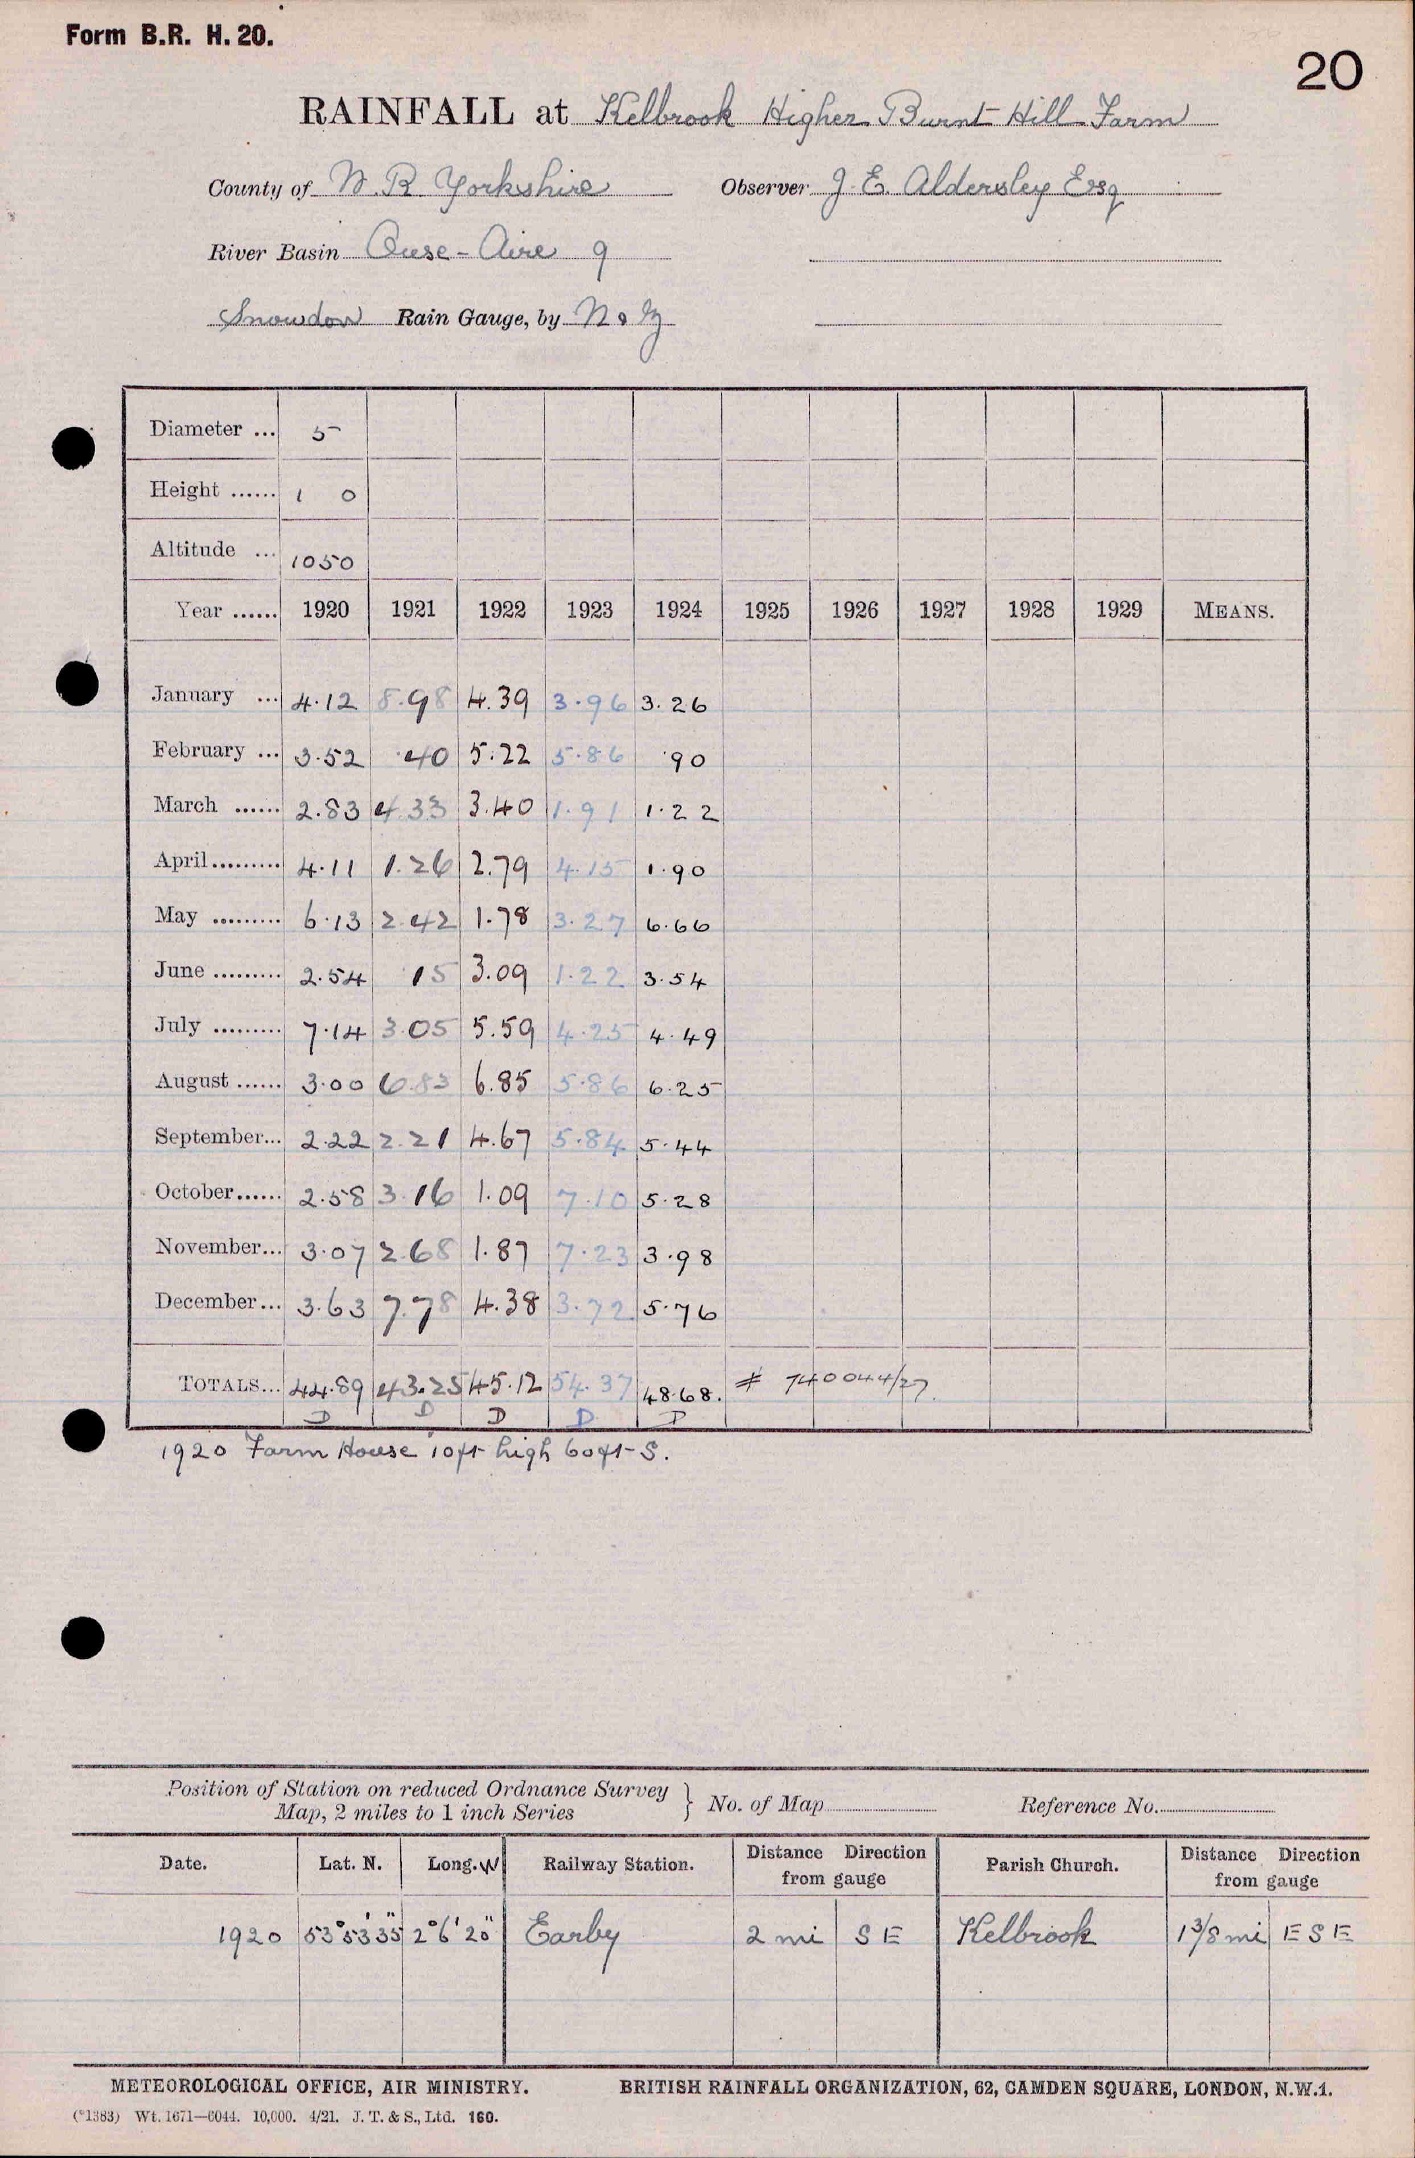 Form B.R. H. 20.
20
RAINFALL at Kelbrook Higher Burnt Hill Farm
County of W. R. Yorkshire Observer J. E. Aldersley Esq
River Basin Ouse - Aire 9
Snowdon Rain Gauge, by N & Z
Diameter ... 5
Height ...... 1 0
Altitude ... 1050
Year ...... 1920 1921 1922 1923 1924 1925 1926 1927 1928 1929 MEANS.
January ... 4.12 8.98 4.39 3.96 3.26
February ... 3.52 .40 5.22 5.86 .90
March ...... 2.83 4.33 3.40 1.91 1.22
April ......... 4.11 1.26 2.79 4.15 1.90
May ......... 6.13 2.42 1.78 3.27 6.66
June ......... 2.54 15 3.09 1.22 3.54
July ......... 7.14 3.05 5.59 4.25 4.49
August ...... 3.00 6.83 6.85 5.86 6.25
September... 2.22 2.21 4.67 5.84 5.44
October...... 2.58 3.16 1.09 7.10 5.28
November... 3.07 2.68 1.87 7.23 3.98
December... 3.63 7.78 4.38 3.72 5.76
TOTALS... 44.89 43.25 45.12 54.37 48.68. # 740044/27.
D D D D D
1920 Farm House 10ft high 60ft S.
Position of Station on reduced Ordnance Survey
Map, 2 miles to 1 inch Series } No. of Map Reference No.
Date. Lat. N. Long. W Railway Station. Distance Direction from gauge Parish Church. Distance Direction from gauge
1920 53° 53' 35" 2° 6' 20" Earby 2 mi S E Kelbrook 1 3/8 mi E S E
METEOROLOGICAL OFFICE, AIR MINISTRY. BRITISH RAINFALL ORGANIZATION, 62, CAMDEN SQUARE, LONDON, N.W.1.
(*1383) Wt. 1671—6044. 10,000. 4/21. J. T. & S., Ltd. 160.